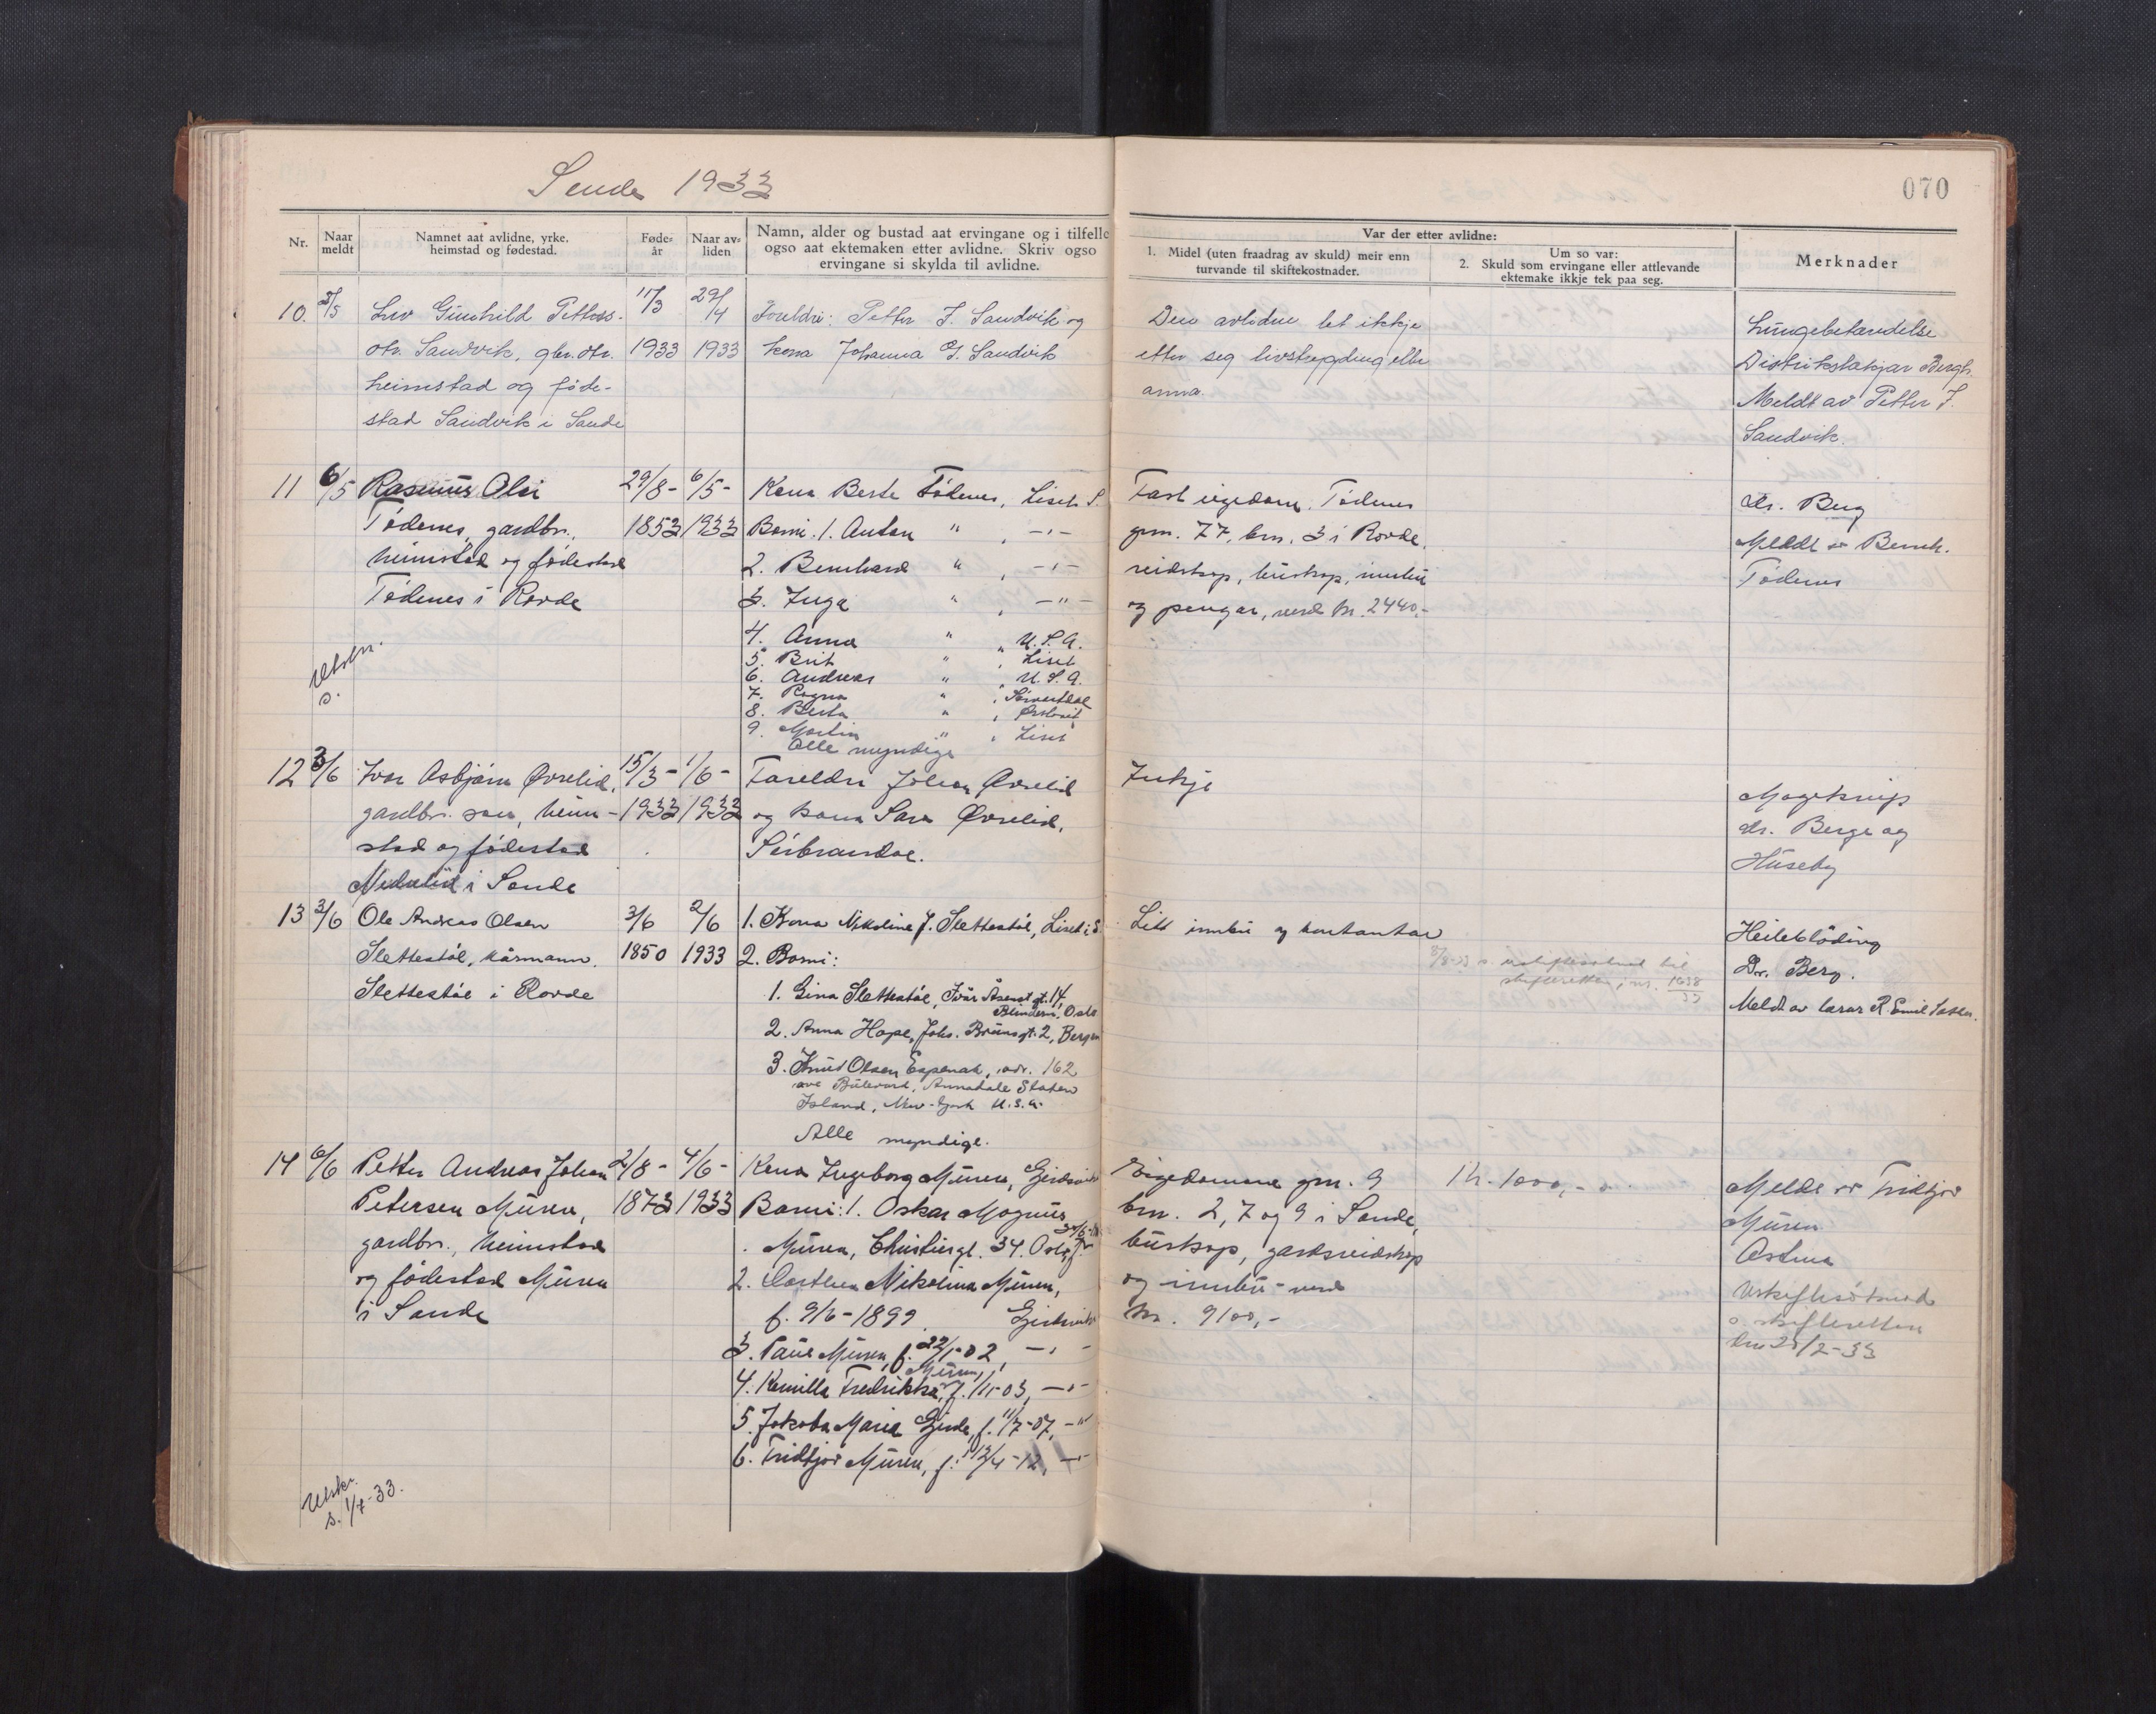 Sande 1933
070
Nr.
Naar meldt
Namnet aat avlidne, yrke, heimstad og fødestad.
Føde-år
Naar av-liden
Namn, alder og bustad aat ervingane og i tilfelle
ogso aat ektemaken etter avlidne. Skriv ogso
ervingane si skylda til avlidne.
Var der etter avlidne:
1. Midel (uten fraadrag av skuld) meir enn
turvande til skiftekostnader.
Um so var:
2. Skuld som ervingane eller attlevande
ektemake ikkje tek paa seg.
Merknader
10. 5/5 Liv Gunhild Petters- 11/3 29/4 Foreldri: Petter J. Sandvik og
dtr. Sandvik, gbr. dtr. 1933 1933 kona Johanna G. Sandvik
heimstad og føde-
stad Sandvik i Sande
Den avlidne let ikkje
etter seg livstrygding eller
anna.
Lungebetendelse
Distriktslækjar Bergh.
Meldt av Petter J.
Sandvik.
11 6/5 Rasmus Olai 29/8- 6/5- Kona Berte Tødenes, Liset S.
Tødenes, gardbr., 1853 1933 Borni: 1. Anton " , -"-
heimstad og fødestad 2. Bernhard " , -"-
Tødenes i Rovde 3. Inga " , -"-
4. Anna " , U.S.A.
5. Brit " , Liset
6. Andreas " , U.S.A.
7. Ragna "
8. Berta "
9. Martin " , Liset
Alle myndige
Utskr.
s.
Fast eigedom, Tødenes
gnr. 77, bnr. 3 i Rovde,
reidskap, buskap, innbu
og pengar, verd kr. 2440,-
dr. Berg
Meldt av Bernh.
Tødenes
12 3/6 Ivar Asbjørn Øvrelid, 15/3- 1/6- Foreldri Johan Øvrelid
gardbr. son, heim- 1933 1933 og kona Sara Øvrelid,
stad og fødestad Sørbrandal.
i Sande
Inkje
Mageknip
dr. Berge og
Huseby
13 3/6 Ole Andreas Olsen 3/6 2/6 1. Kona Nikoline J. Slettestøl, Liset i S.
Slettestøl, kårmann. 1850 1933 2. Borni:
Slettestøl i Rovde
1. Gina Slettestøl, Ivar Åsens gt. 14,
Blindern, Oslo
2. Anna Hope, Johs. Brunsgt. 2, Bergen
3. Knut Olsen Espenak, adr. 162
ave Bulevard, Annadale Staten
Island, New-York U.S.A.
Alle myndige.
Litt innbu og kontantar
skifteretten, nr. 1638/33
Heilebløding
Dr. Berg.
Meldt av lærar R. Emil
14 6/6 Petter Andreas Johan 2/8- 4/6- Kona Ingeborg Muren,
Petersen Muren, 1873 1933 Borni: 1. Oskar Magnus
gardbr., heimstad Muren, Christiesgt. 34. Oslo,
og fødestad Muren 2. Nikolina Muren,
i Sande f. 9/6-1899
3. Paul Muren, f. 22/1-02, -"-
Muren,
4. Kamilla Fredrikka, f. -03, -"-
5. Jakoba Maria Gjerde, f. 11/7-07, -"-
6. Fridtjov Muren, f. 12/4-12, -"-
Utskr.
s. 1/7-33.
Eigedomane gnr. 9
bnr. 2, 7 og 9 i Sande,
buskap, gardsreidskap
og innbu - verd
kr. 9100,-
Kr. 1000,-
Meldt av Fridtjov
Muren
Astma
skifteretten